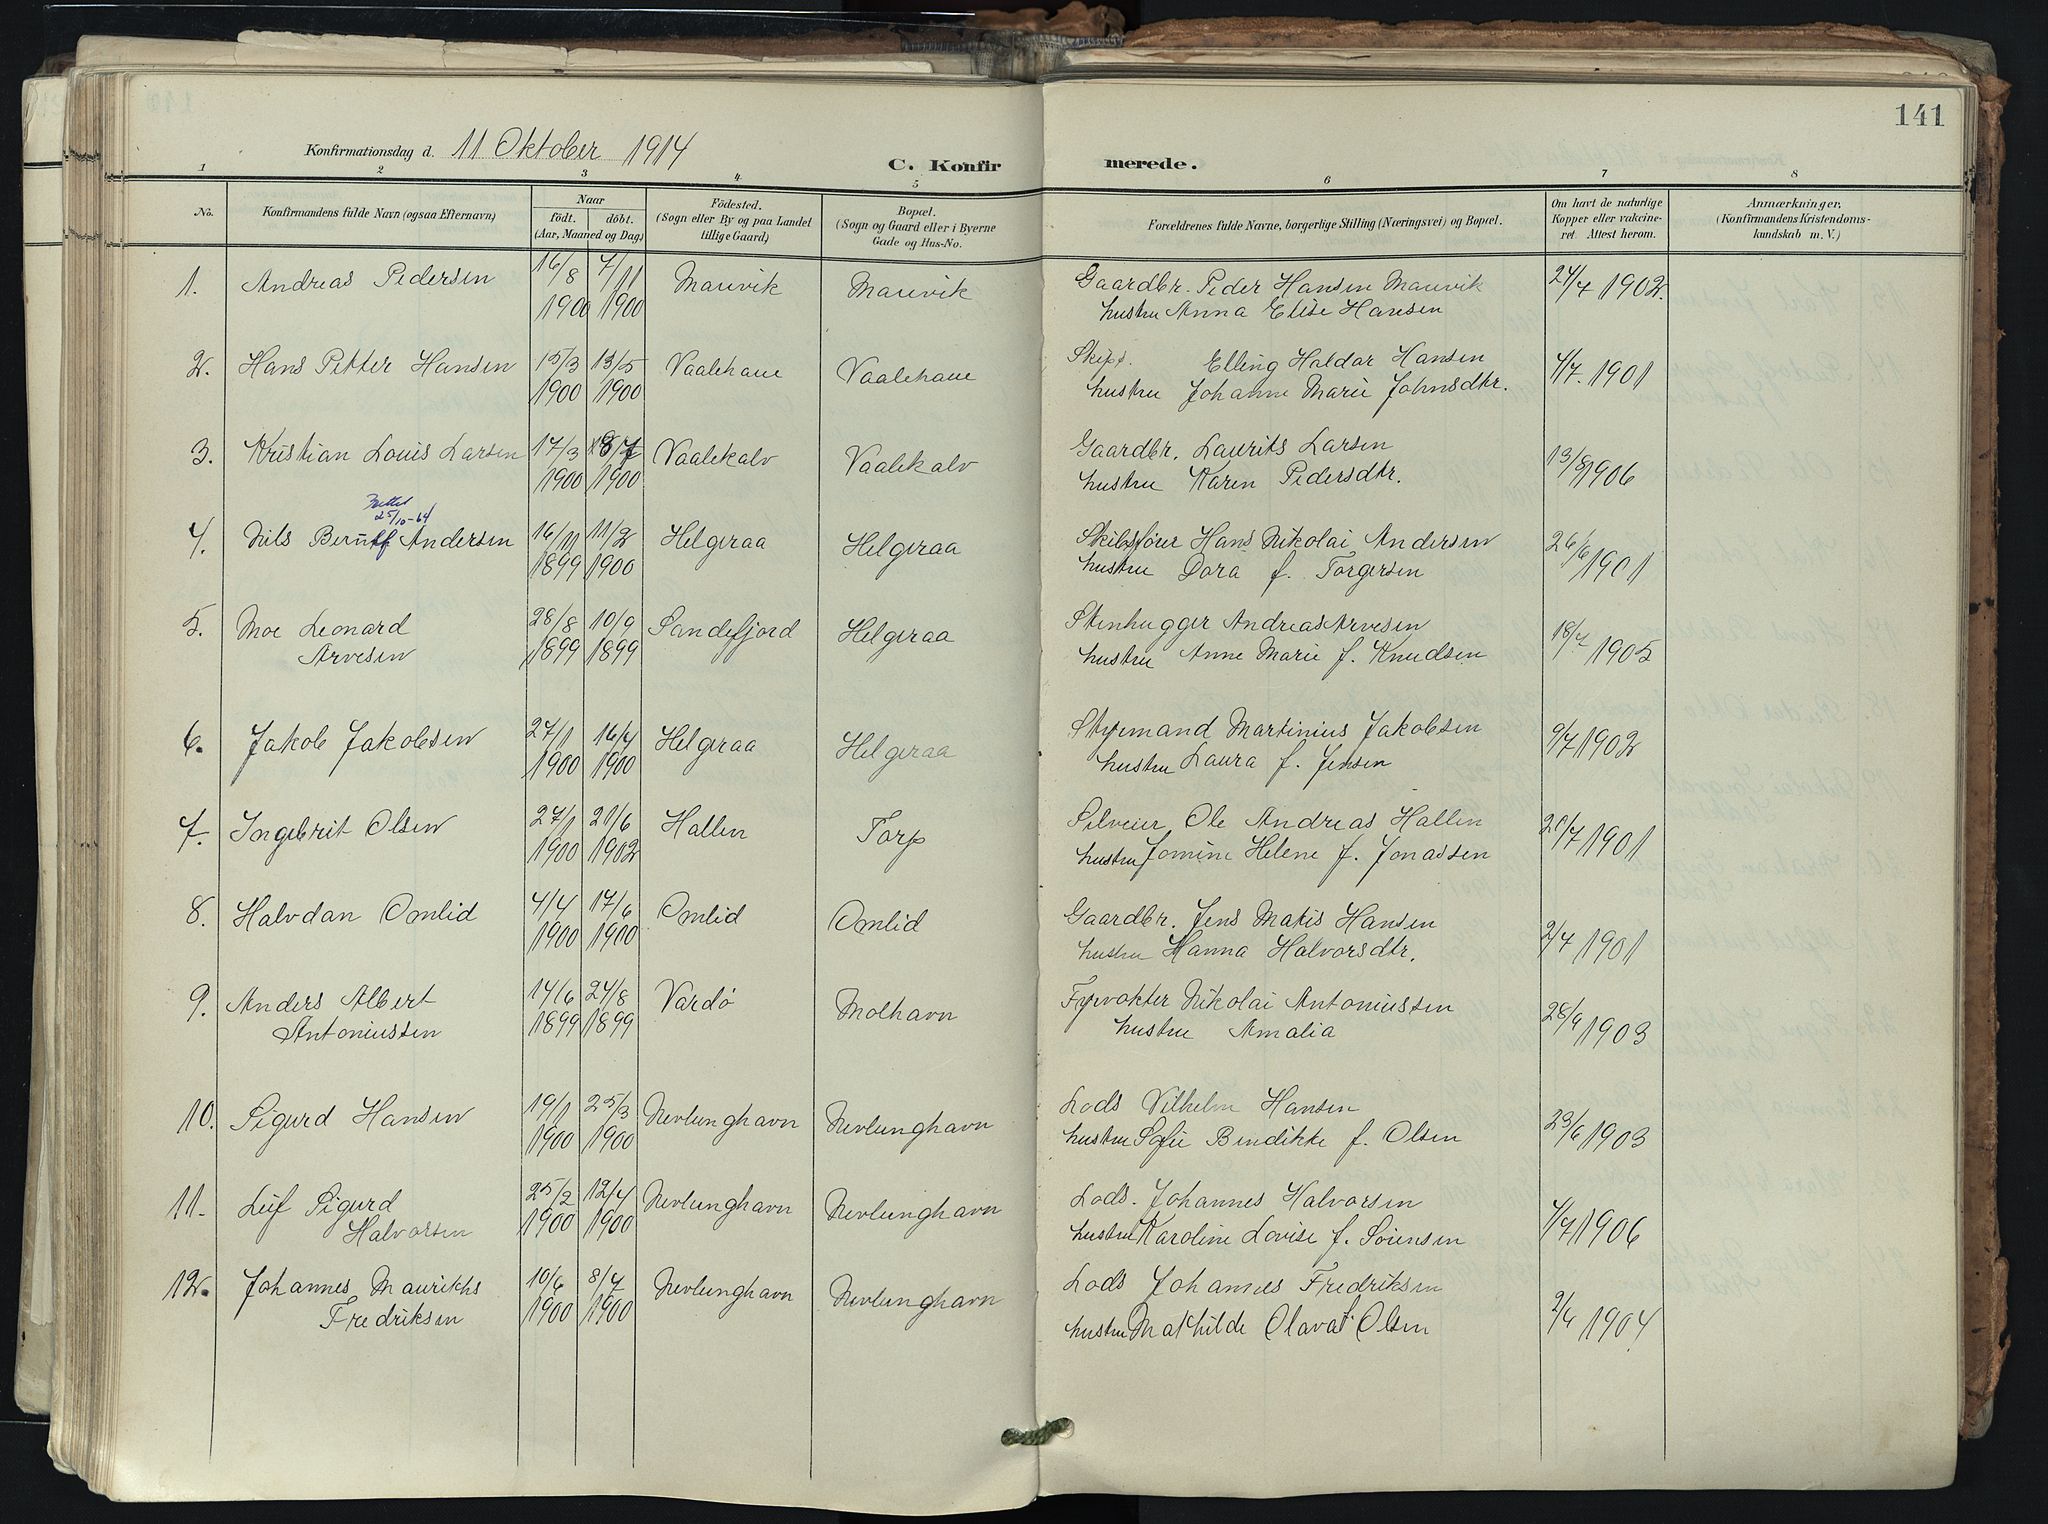 141
Konfirmationsdag d. 11 Oktober 1914
C. Konfirmerede.
1 2 3 4 5 6 7 8
No.
Konfirmandens fulde Navn (ogsaa Efternavn)
Naar
födt. döbt.
(Aar, Maaned og Dag)
Födested.
(Sogn eller By og paa Landet
tillige Gaard)
Bopæl.
(Sogn og Gaard eller i Byerne
Gade og Hus-No.
Forældrenes fulde Navne, borgerlige Stilling (Næringsvei) og Bopæl.
Om havt de naturlige
Kopper eller vakcine-
ret. Attest herom.
Anmærkninger.
(Konfirmandens Kristendoms-
kundskab m. V.)
1. Andreas Pedersen 16/8 7/11 Manvik Manvik Gaardbr. Peder Hansen Manvik 24/7 1902.
1900 1900 hustru Anna Elise Hansen
2. Hans Petter Hansen 15/3 13/5 Vaalehaue Vaalehaue Skips. Elling Haldar Hansen 4/7. 1901
1900 1900 hustru Johanne Marie Johnsdtr.
3. Kristian Louis Larsen 17/3 8/7 Vaalekalv Vaalekalv Gaardbr. Laurits Larsen 13/8 1906
1900 1900 hustru Karen Pedersdtr.
25/10-64
4. Nils Berntf Andersen 16/11 11/2 Helgeraa Helgeraa Skibsfører Hans Nikolai Andersen 26/6 1901
1899 1900 hustru Dora f. Torgersen
5. Moe Leonard 28/8 10/9 Sandefjord Helgeraa Stenhugger Andreas Arvesen 18/7 1905
Arvesen 1899 1899 hustru Anne Marie f. Knudsen
6. Jakob Jakobsen 27/1 16/4 Helgeraa Helgeraa Styrmand Martinius Jakobsen 9/7 1902
1900 1900 hustru Laura f. Jensen
7. Ingebrit Olsen 27/1 21/6 Hallen Torp Selveier Ole Andreas Hallen 7 1901
1900 1902 hustru Jomine Helene f. Jonassen
8. Halvdan Omlid 4/4 17/6 Omlid Omlid Gaardbr. Jens Matis Hansen 2/7 1901
1900 1900 hustru Hanna Halvorsdtr.
9. Anders Albert 14/6 24/8 Vardø Molhavn Fyrvokter Nikolai Antoniussen 28/9 1903
Antoniussen 1899 1899 hustru Amalia
10. Sigurd Hansen 19/1 25/3 Nevlunghavn Nevlunghavn Lods Vilhelm Hansen 23/6 1903
1900 1900 hustru Sofie Bendikke f. Olsen
11. Leif Sigurd 25/2 12/4 Nevlunghavn Nevlunghavn Lods. Johannes Halvorsen 4/7 1906
Halvorsen 1900 1900 hustru Karoline Lovise f. Sörensen
12. Johannes Maurikhs 10/6 8/7 Nevlunghavn Nevlunghavn Lods Johannes Fredriksen 2/6 1904
Fredriksen 1900 1900 hustru Mathilde Olava f. Olsen